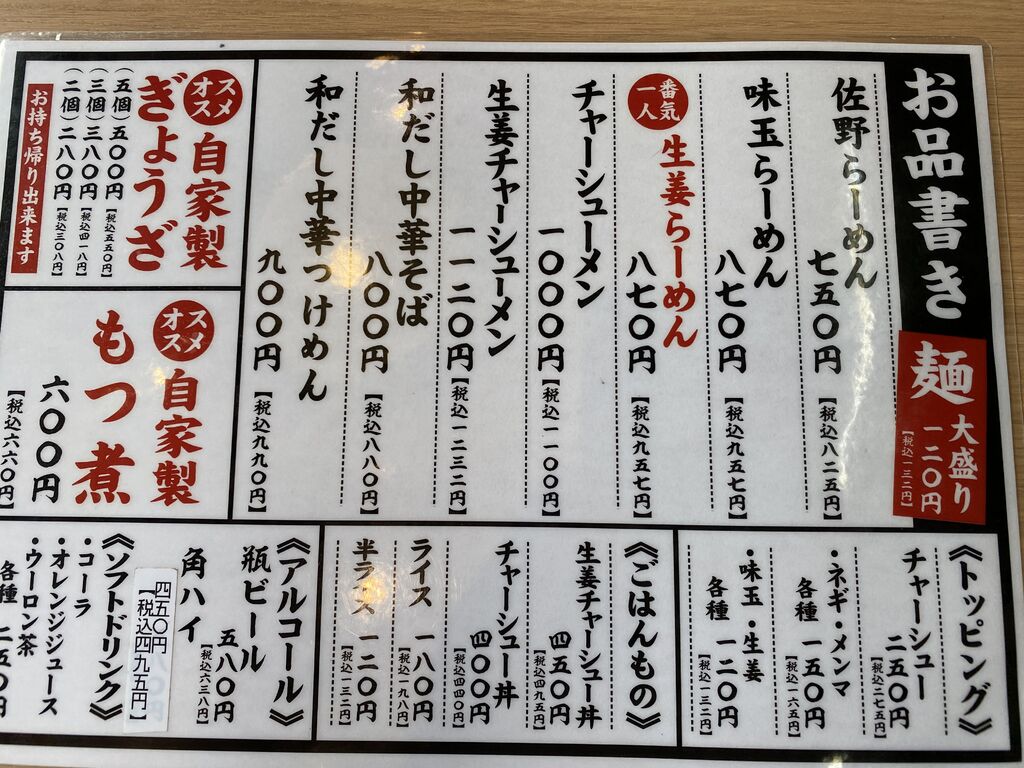 お品書き
麺
大盛り
一二〇円
【税込一三二円】
佐野らーめん
七五〇円
【税込八二五円】
味玉らーめん
八七〇円
【税込九五七円】
一番人気
生姜らーめん
八七〇円
【税込九五七円】
チャーシューメン
一〇〇〇円
【税込一一〇〇円】
生姜チャーシューメン
一一二〇円
【税込一二三二円】
和だし中華そば
八〇〇円
【税込八八〇円】
和だし中華つけめん
九〇〇円
【税込九九〇円】
オススメ
自家製
ぎょうざ
（五個）五〇〇円【税込五五〇円】
（三個）三八〇円【税込四一八円】
（二個）二八〇円【税込三〇八円】
お持ち帰り出来ます
オススメ
自家製
もつ煮
六〇〇円
【税込六六〇円】
《トッピング》
チャーシュー
二五〇円
【税込二七五円】
・ネギ・メンマ
各種 一五〇円
【税込一六五円】
・味玉・生姜
各種 一二〇円
【税込一三二円】
《ごはんもの》
生姜チャーシュー丼
四五〇円
【税込四九五円】
チャーシュー丼
四〇〇円
【税込四四〇円】
ライス 一八〇円
【税込一九八円】
半ライス 一二〇円
【税込一三二円】
《アルコール》
瓶ビール
五八〇円
【税込六三八円】
角ハイ
四五〇円
【税込四九五円】
《ソフトドリンク》
・コーラ
・オレンジジュース
・ウーロン茶
各種 二五〇円